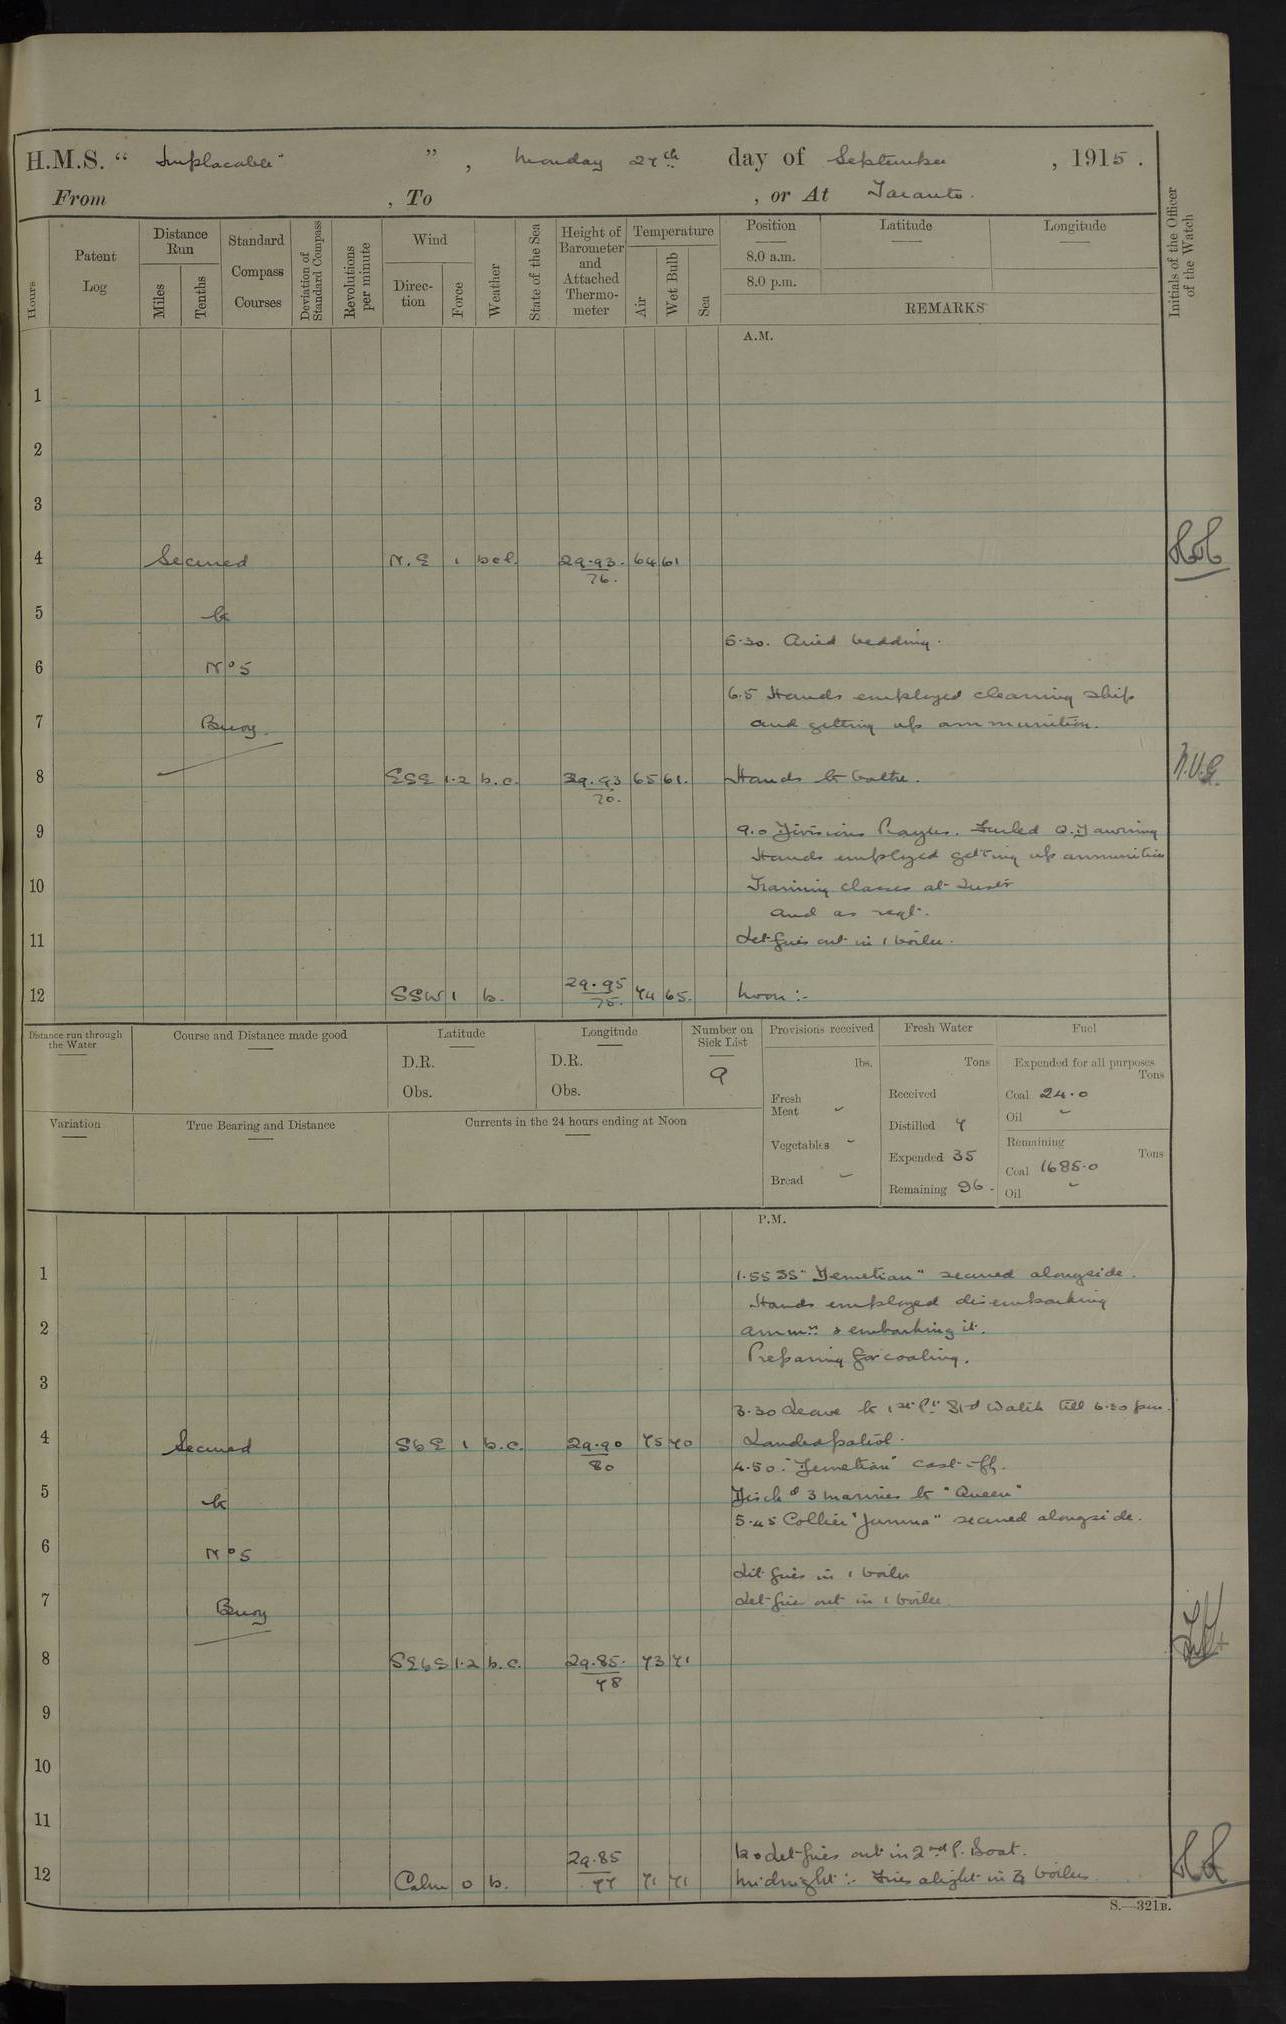 H.M.S. " Implacable" ", Monday 27th day of September, 1915.
From , To , or At Taranto.
Hours
Patent Log
Distance Run
Miles
Tenths
Standard Compass Courses
Deviation of Standard Compass
Revolutions per minute
Wind
Direction
Force
Weather
State of the Sea
Height of Barometer and Attached Thermometer
Temperature
Air
Wet Bulb
Sea
Position
8.0 a.m.
8.0 p.m.
Latitude
Longitude
REMARKS
Initials of the Officer of the Watch
A.M.
1
2
3
4 Secured N.E 1 bcl. 29.93. 64 61
76.
5 to
5.30. Aired bedding.
6 No 5
6.5 Hands employed cleaning ship
7 Buoy. and getting up ammunition.
8 ESE 1.2 b.c. 29.93 65 61. Hands to bathe. N.V.G.
70.
9 9.0 Divisions Prayers. Furled Q.D awning
Hands employed getting up ammunition
10 Training classes at Instn
and as reqt.
11 Let fires out in 1 boiler.
12 SSW 1 b. 29.95 74 65. Noon :-
75.
Distance run through the Water
Course and Distance made good
Latitude
D.R.
Obs.
Longitude
D.R.
Obs.
Number on Sick List
9
Provisions received
lbs.
Fresh Meat -
Vegetables -
Bread -
Fresh Water
Tons
Received
Distilled 7
Expended 35
Remaining 96.
Fuel
Expended for all purposes
Tons
Coal 24.0
Oil -
Remaining
Tons
Coal 1685.0
Oil -
Variation
True Bearing and Distance
Currents in the 24 hours ending at Noon
P.M.
1 1.55 SS "Demetian" secured alongside.
Hands employed disembarking
2 ammn & embarking it.
Preparing for coaling.
3
3.30 Leave to 1st Pt Std Watch till 6.30 pm.
4 Secured SbE 1 b.c. 29.90 75 70 Landed patrol.
80 4.50. "Demetian" cast off.
5 to Disch'd 3 marines to "Queen"
5.45 Collier "Jumna" secured alongside.
6 No 5
Lit fires in 1 boiler
7 Buoy Let fires out in 1 boiler
8 SEbS 1.2 b.c. 29.85. 73 71
78
9
10
11
29.85 12.0 Let fires out in 2nd P. Boat.
12 Calm 0 b. 77 71 71 Midnight :- Fires alight in 3 boilers.
S.—321B.